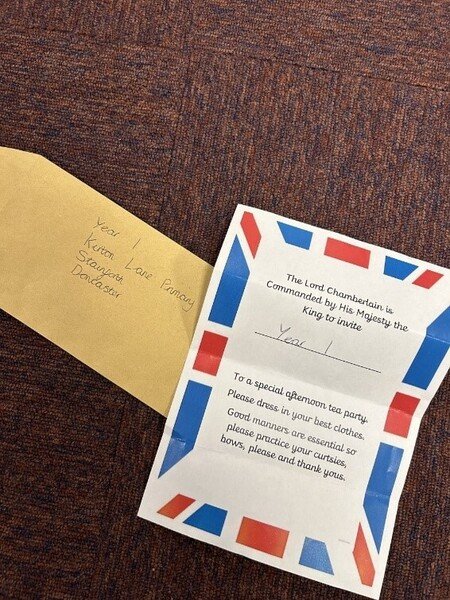 Year 1
Kirton Lane Primary
Stainforth
Doncaster
The Lord Chamberlain is
Commanded by His Majesty the
King to invite
Year 1
To a special afternoon tea party.
Please dress in your best clothes.
Good manners are essential so
please practice your curtsies,
bows, please and thank yous.